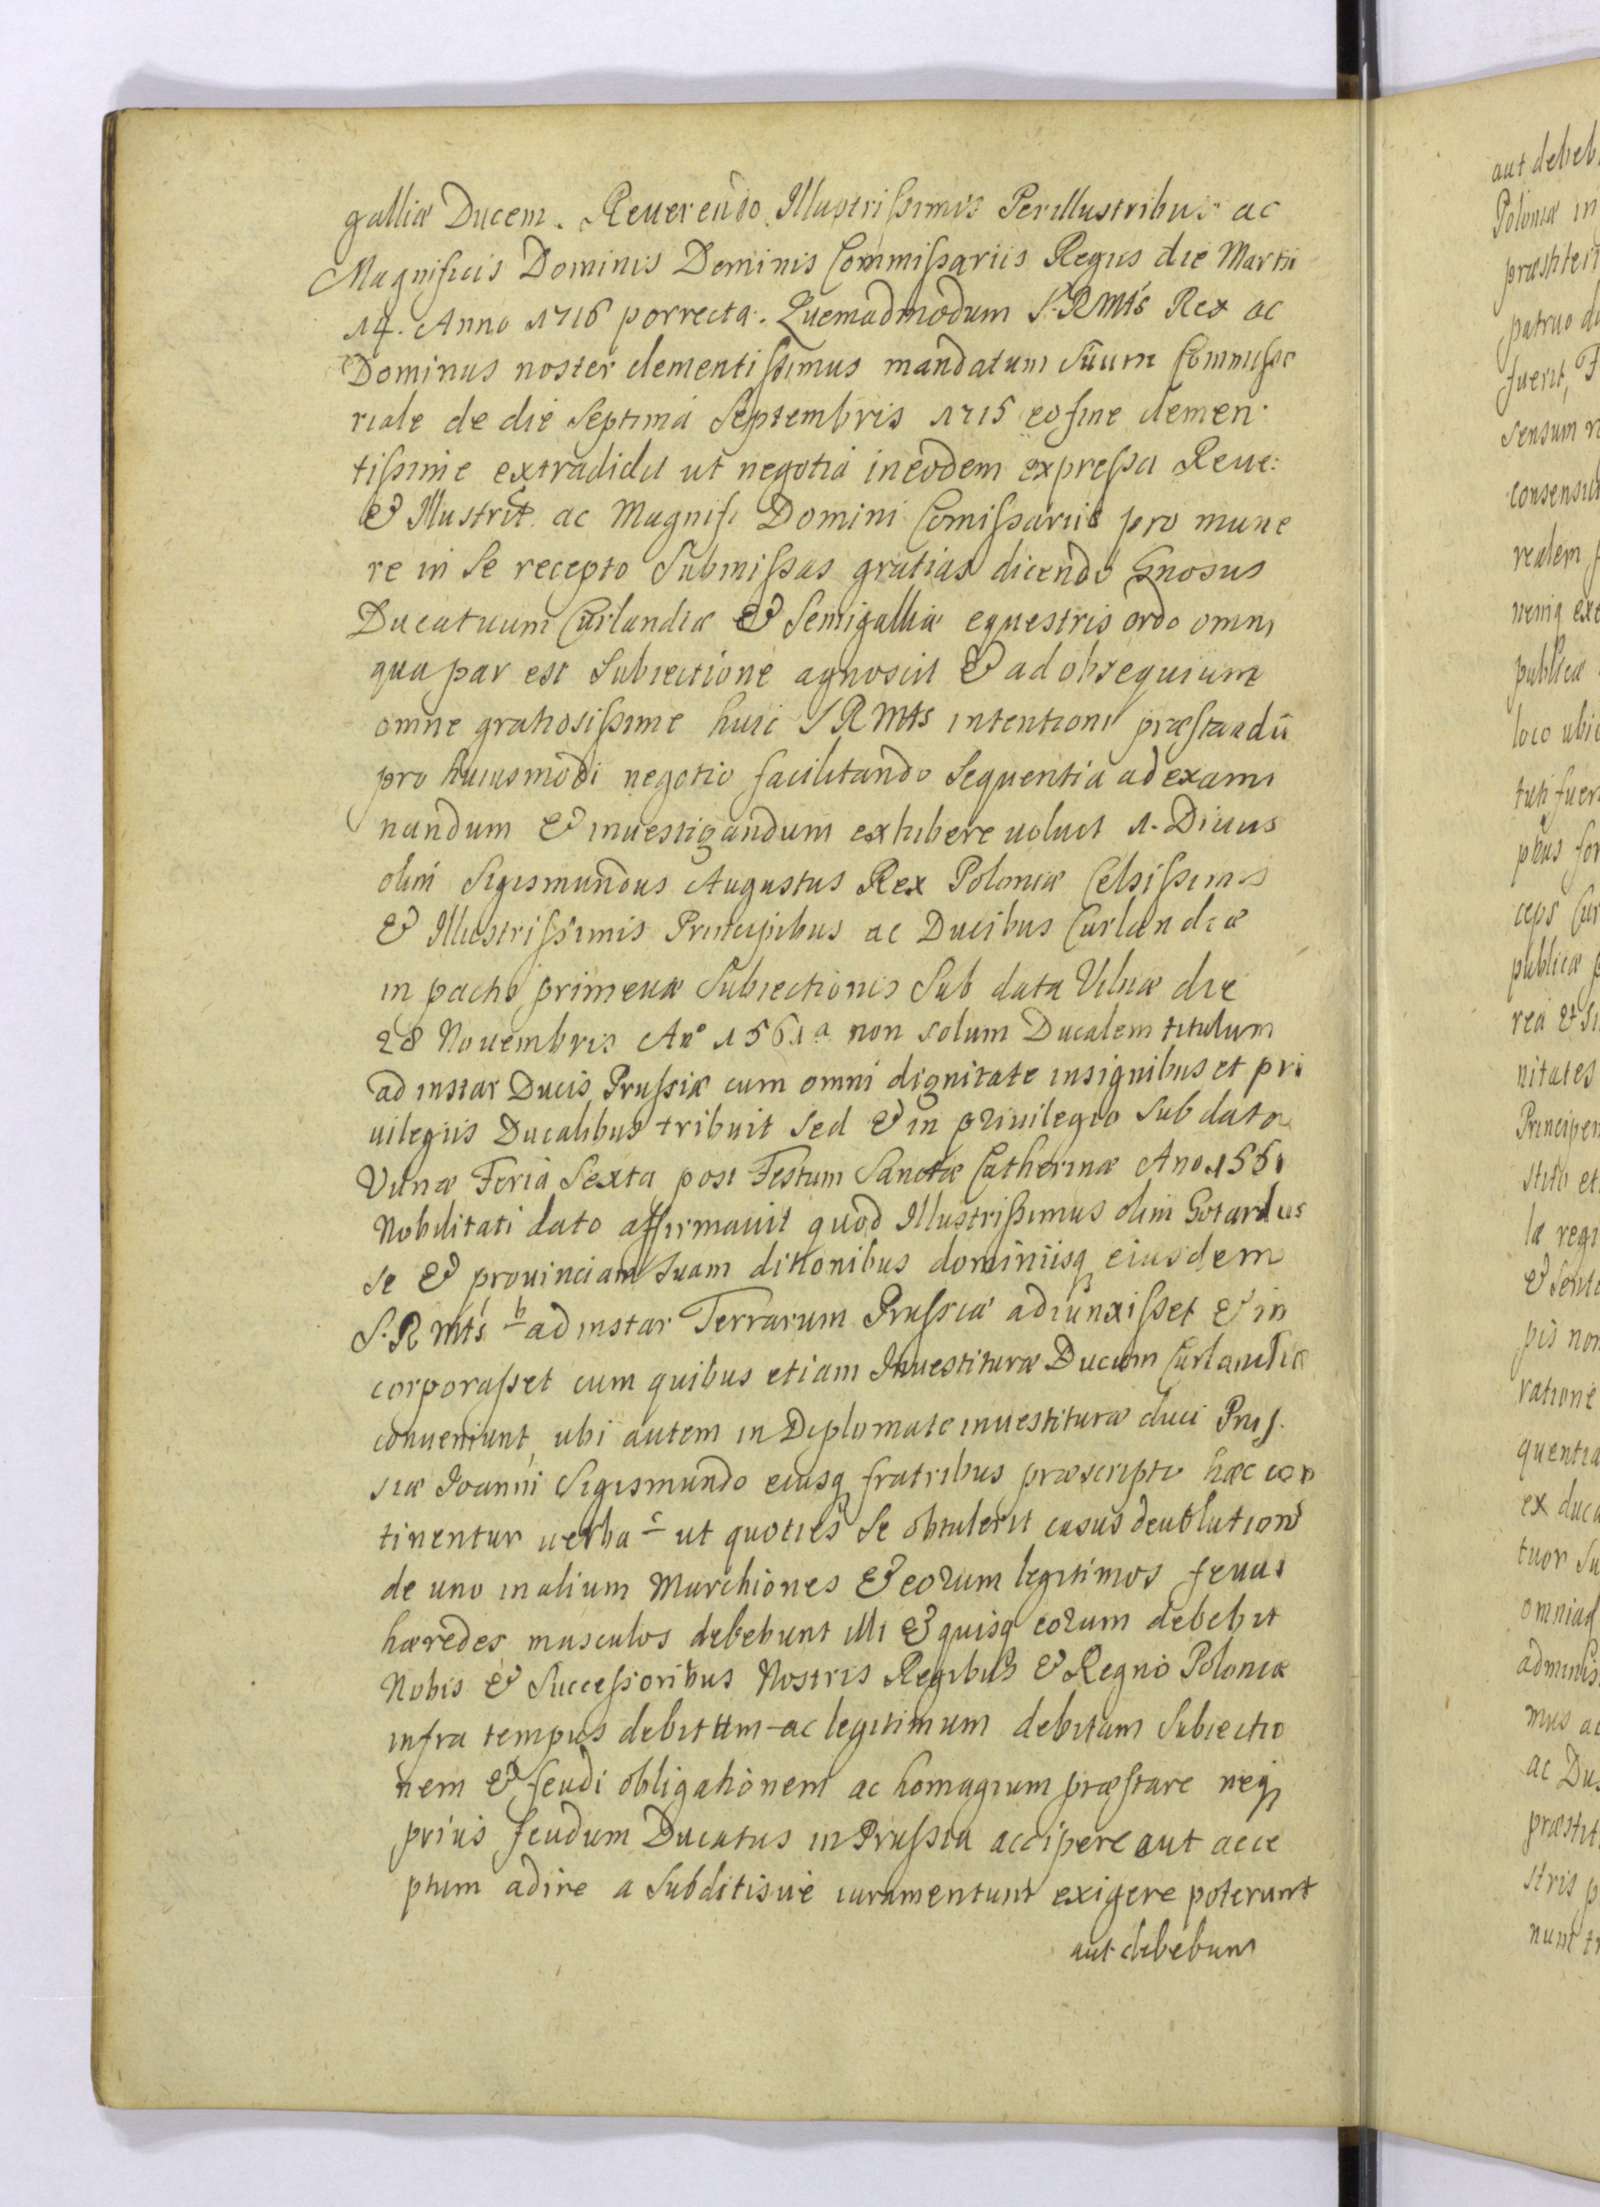 galliæ Ducem. Reuerendo Illustrissimis Perillustribus ac
Magnificis Dominis Dominis Commissariis Regus die Martii
14. Anno 1716 porrecta. Quemadmodum S. R Mtis Rex ac
Dominus noster clementissimus mandatum suum Commissa
riale de die septima Septembris 1715 eo fine clemen
tissime extradidit ut negotia in eodem expressa Reue:
& Illustris ac Magnifi Domini Comissariis pro mune
re in se recepto submissas gratias dicendo Gnosus
Ducatuum Curlandiæ & Semigalliæ equestris ordo omni
qua par est subiectione agnoscit & ad obsequium
omne gratiosissime huic S R Mtis intentioni præstandū
pro huiusmodi negotio facilitando sequentia ad exami
nandum & inuestigandum exhibere uoluit 1. Diuus
olim Sigismundus Augustus Rex Poloniæ Celsissimis
& Illustrissimis Principibus ac Ducibus Curlandiæ
in pacto primeuæ subiectionis sub data Vilnæ die
28 Nouembris Ano 1561 a non solum Ducalem titulum
ad instar Ducis Prussiæ cum omni dignitate insignibus et pri
uilegiis Ducalibus tribuit sed & in priuilegio sub dato
Vilnæ Feria sexta post Festum Sanctæ Catherinæ Ano 1561
Nobilitati dato affirmauit quod Illustrissimus olim Gotardus
se & prouinciam suam ditionibus dominiisq eiusdem
S. R Mtis b ad instar Terrarum Prussiæ adiunxisset & in
corporasset cum quibus etiam Inuestituræ Ducum Curlandiæ
conueniunt, ubi autem in Diplomate inuestituræ duci Prus.
siæ Joanni Sigismundo eiusq fratribus præscripto hæc con
tinentur uerba c ut quoties se obtulerit casus deuolutionis
de uno in alium Marchiones & eorum legitimos feuus
hæredes masculos debebunt illi & quisq eorum debebit
Nobis & Successoribus Nostris Regibus & Regno Poloniæ
infra tempus debitum ac legitimum debitam subiectio
nem & feudi obligationem ac homagium præstare neq
prius feudum Ducatus in Prussia accipere aut acce
ptum adire a subditisue iuramentum exigere poterunt
aut debebunt
aut debeb
Poloniæ in
præstiteri
patruo du
fuerit,
sensum
consensu
realem
publica
loco ubi
tuti fuer
publicæ
nitates
Principem
ratione
quentia
ex duca
tuor su
omniaq
adminis
mus ac
ac Du
præstit
stris p